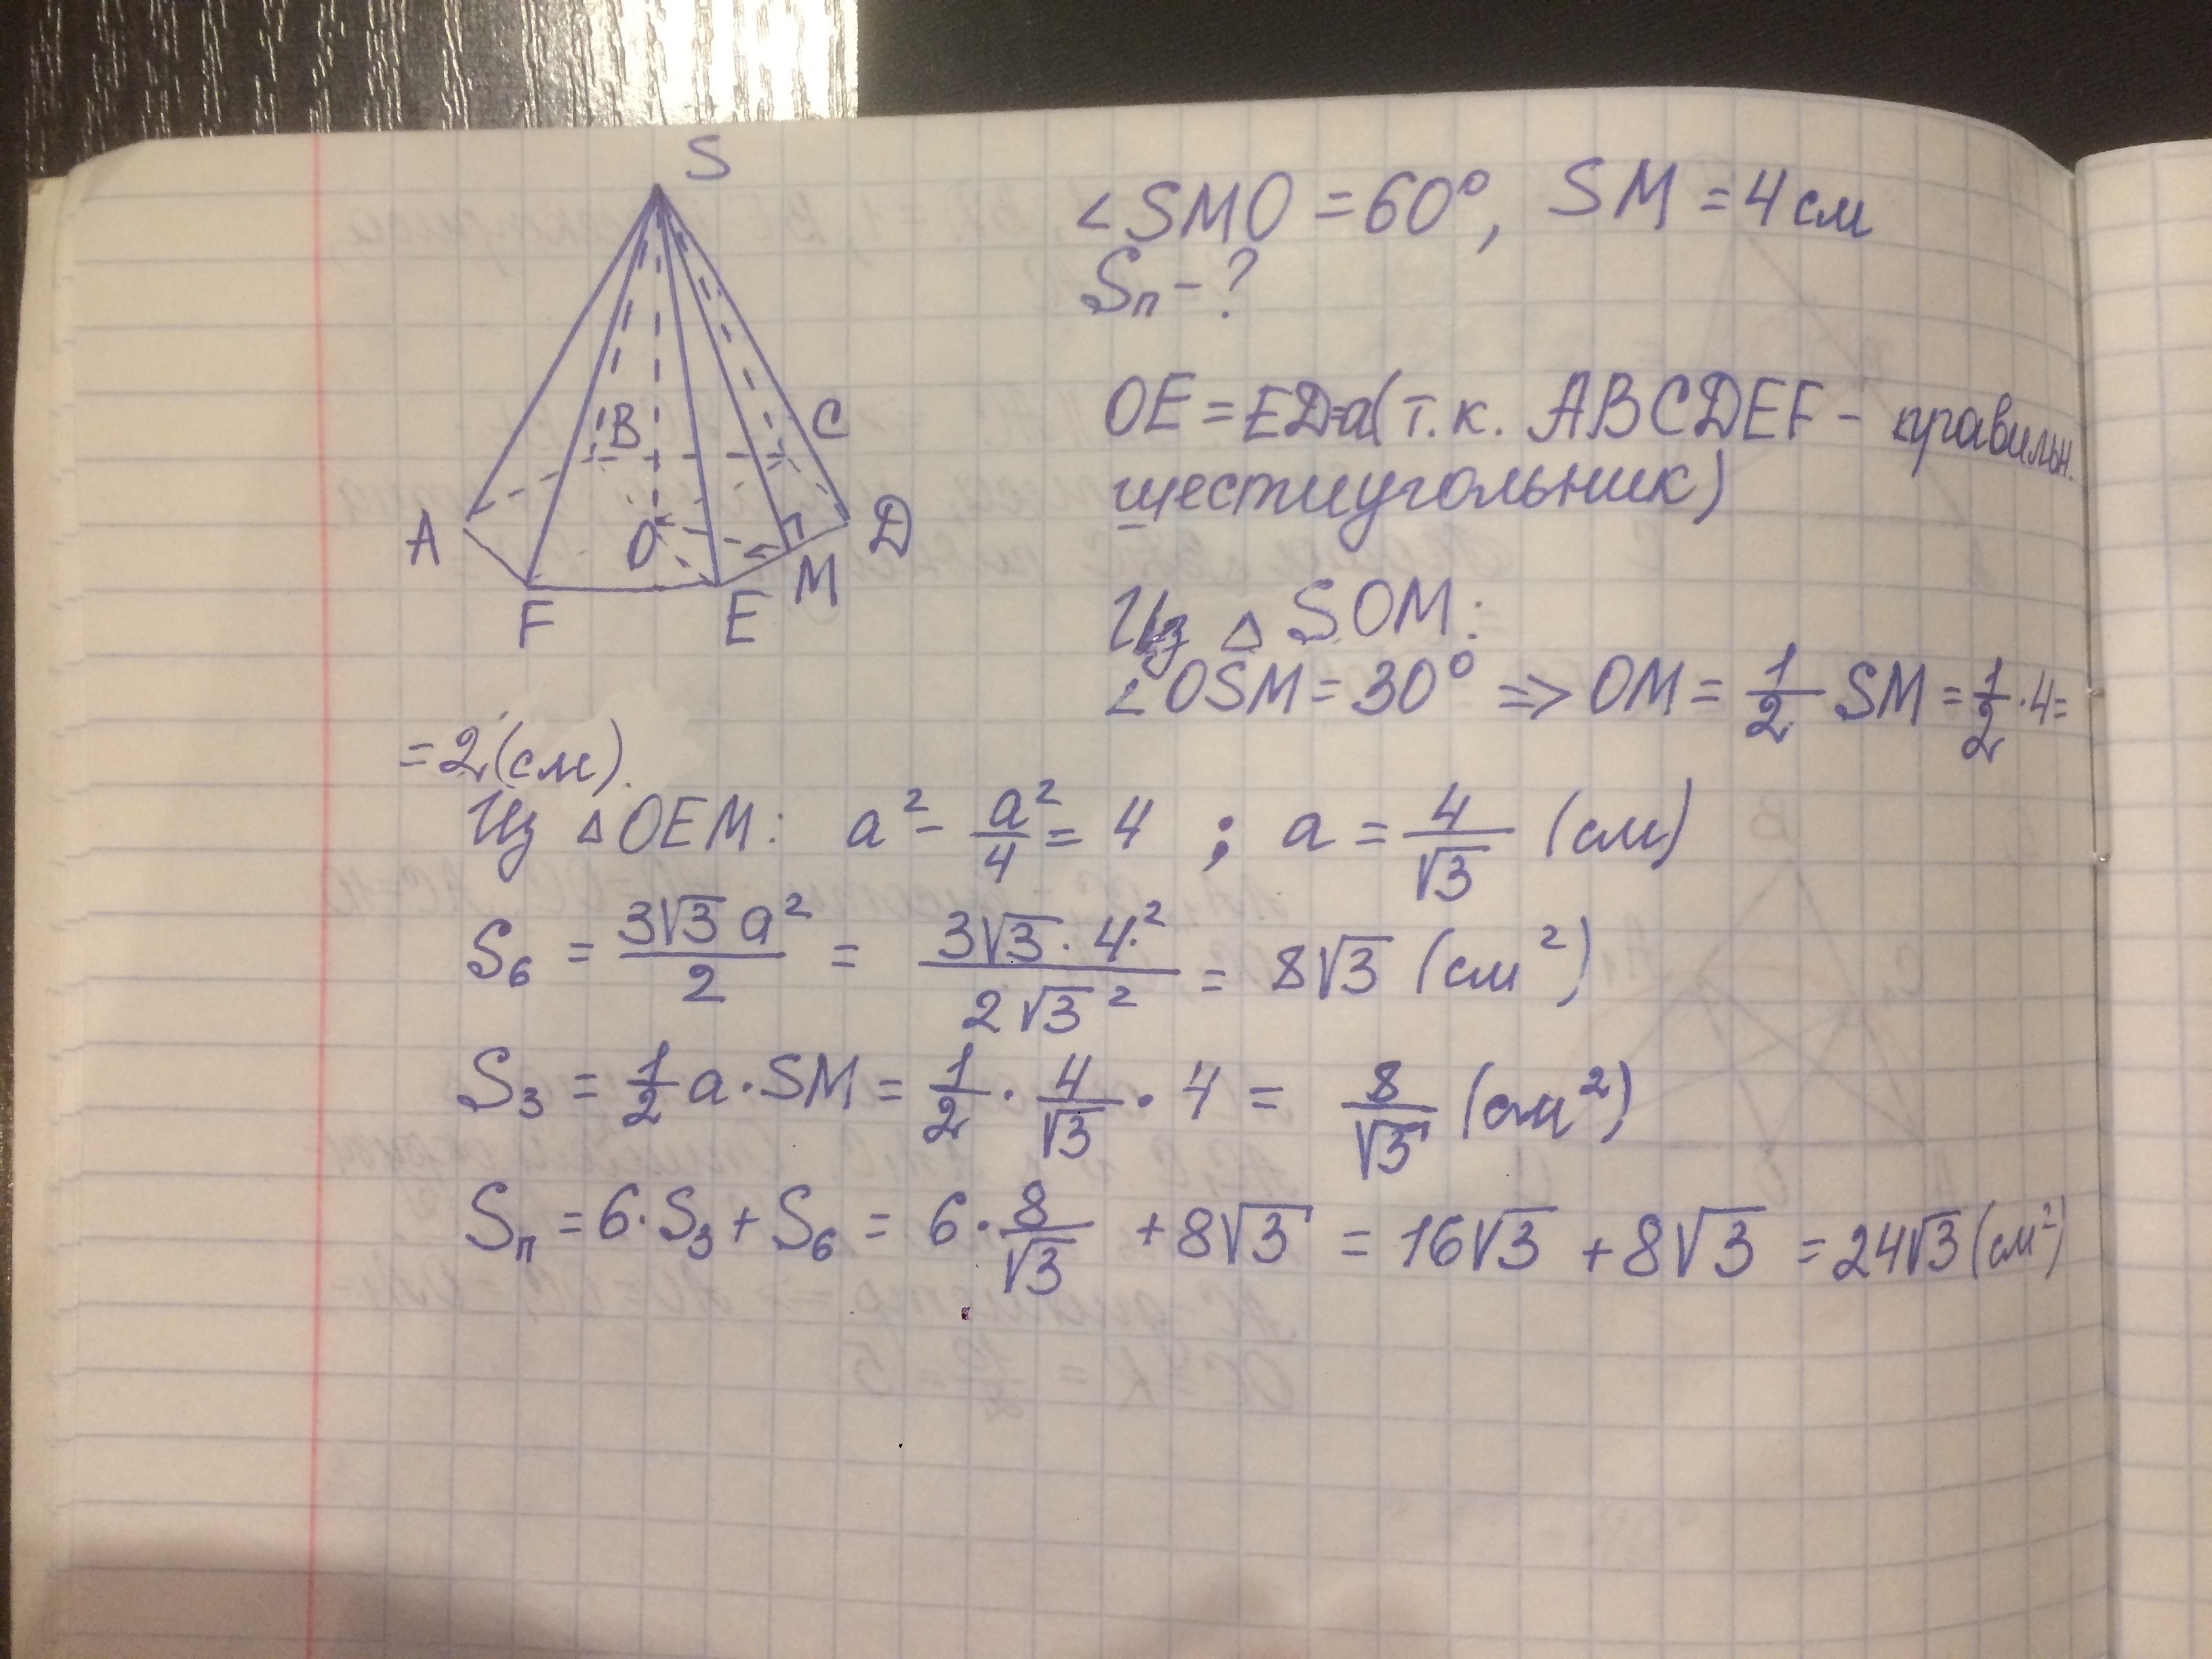 S
A
B
C
D
O
M
F
E
∠SMO = 60°, SM = 4 см
Sп - ?
OE = ED=a (т.к. ABCDEF - правильн.
шестиугольник)
Из △ SOM:
∠OSM = 30° => OM = 1/2 SM = 1/2 · 4 =
= 2 (см).
Из △OEM: a² - a²/4 = 4 ; a = 4/√3 (см)
S₆ = 3√3 a²/2 = 3√3 · 4²/2√3² = 8√3 (см²)
S₃ = 1/2 a · SM = 1/2 · 4/√3 · 4 = 8/√3 (см²)
Sп = 6 · S₃ + S₆ = 6 · 8/√3 + 8√3 = 16√3 + 8√3 = 24√3 (см²)